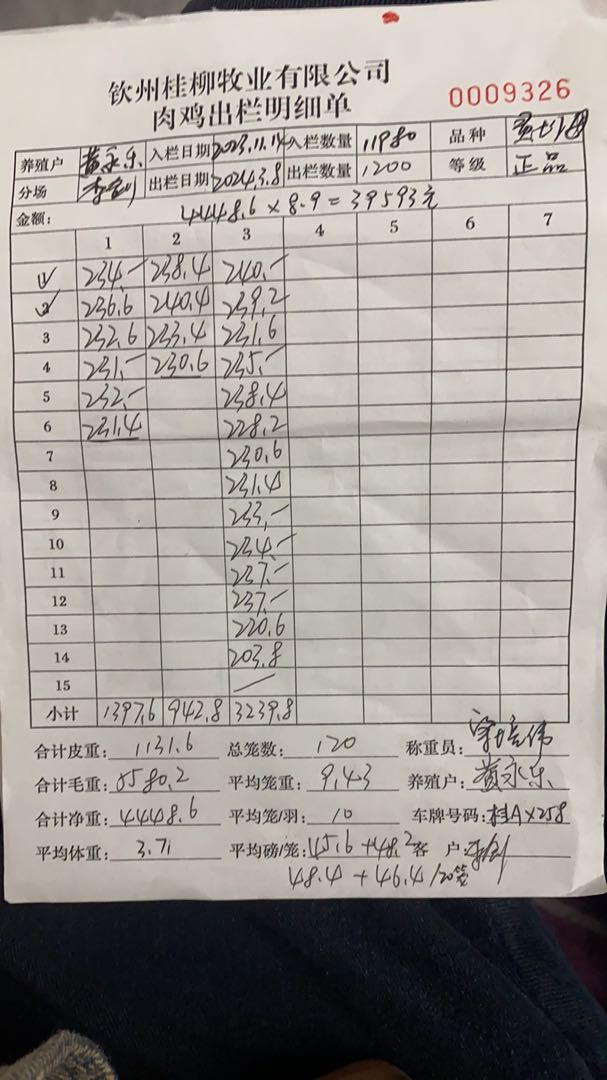 钦州桂柳牧业有限公司
肉鸡出栏明细单 0009326
养殖户 黄永乐 入栏日期 2023.11.14 入栏数量 11980 品种
分场 出栏日期 2024.3.8 出栏数量 1200 等级 正品
金额: 4448.6 × 8.9 = 39593元
1 2 3 4 5 6 7
1 234.- 238.4 240.-
2 236.6 240.4 239.2
3 232.6 233.4 231.6
4 231.- 230.6 235.-
5 232.- 238.4
6 231.4 228.2
7 230.6
8 231.4
9 233.-
10 234.-
11 237.-
12 237.-
13 220.6
14 203.8
15 /
小计 1397.6 942.8 3239.8
合计皮重: 1131.6 总笼数: 120 称重员:
合计毛重: 5580.2 平均笼重: 9.43 养殖户: 黄永乐
合计净重: 4448.6 平均笼/羽: 10 车牌号码: 桂AX258
平均体重: 3.71 平均磅/笼: 45.6 + 48.2 客 户:
48.4 + 46.4 /20笼